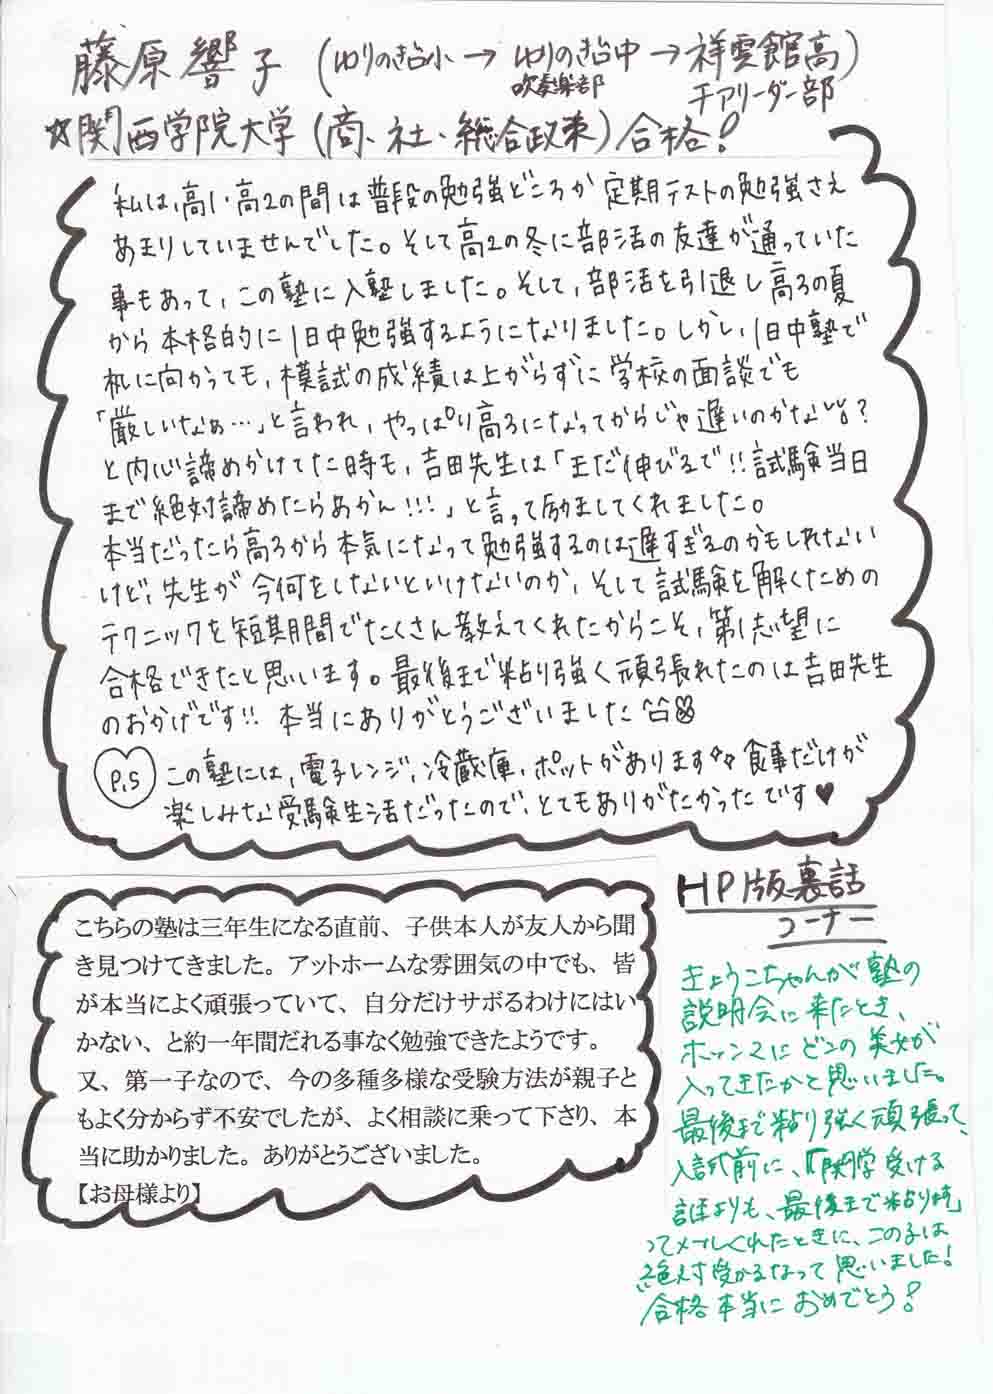 藤原響子(ゆりのき台小→ゆりのき台中→祥雲館高)
吹奏楽部
チアリーダー部
☆関西学院大学(商、社、総合政策)合格!
私は、高1、高2の間は普段の勉強どころか定期テストの勉強さえ
あまりしていませんでした。そして高2の冬に部活の友達が通っていた
事もあって、この塾に入塾しました。そして、部活を引退し高3の夏
から本格的に1日中勉強するようになりました。しかし、1日中塾で
机に向かっても、模試の成績は上がらずに学校の面談でも
「厳しいなぁ…」と言われ、やっぱり高3になってからじゃ遅いのかな…?
と内心諦めかけてた時も、吉田先生は「まだ伸びるで!!試験当日
まで絶対諦めたらあかん!!!」と言って励ましてくれました。
本当だったら高3から本気になって勉強するのは遅すぎるのかもしれない
けど、先生が今何をしないといけないのか、そして試験を解くための
テクニックを短期間でたくさん教えてくれたからこそ、第1志望に
合格できたと思います。最後まで粘り強く頑張れたのは吉田先生
のおかげです!!本当にありがとうございました
P.S この塾には、電子レンジ、冷蔵庫、ポットがあります 食事だけが
楽しみな受験生活だったので、とてもありがたかったです♥
こちらの塾は三年生になる直前、子供本人が友人から聞
き見つけてきました。アットホームな雰囲気の中でも、皆
が本当によく頑張っていて、自分だけサボるわけにはい
かない、と約一年間だれる事なく勉強できたようです。
又、第一子なので、今の多種多様な受験方法が親子と
もよく分からず不安でしたが、よく相談に乗って下さり、本
当に助かりました。ありがとうございました。
【お母様より】
HP版裏話
コーナー
きょうこちゃんが塾の
説明会に来たとき、
ホンマにどこの美女が
入ってきたかと思いました。
最後まで粘り強く頑張って、
入試前に、「関学受ける
誰よりも、最後まで粘ります」
ってメールくれたときに、この子は
絶対受かるなって思いました!
合格本当におめでとう!